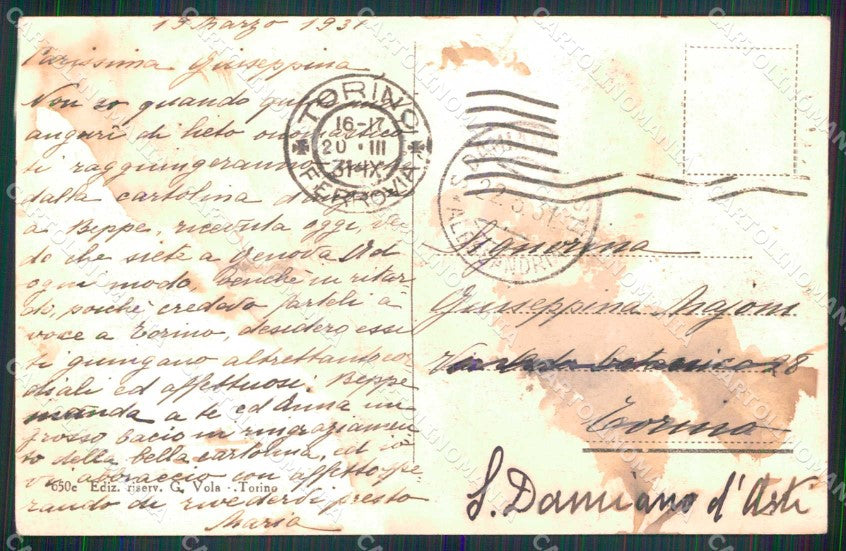 19 Marzo 1931
Carissima Giuseppina
Non so quando
auguri di lieto onomastico
ti raggiungeranno
dalla cartolina
a Beppe, ricevuta oggi, ve
do che siete a Genova. Ad
ogni modo benché in ritar
do, poiché credevo farteli a
voce a Torino, desidero essi
ti giungano altrettanto cor
diali ed affettuosi. Beppe
manda a te ed Anna un
grosso bacio in ringraziamen
to della bella cartolina, ed io
vi abbraccio con affetto spe
rando di rivedervi presto
Maria
650c Ediz. riserv. G. Vola - Torino
TORINO
16-17
20 · III
31·IX
FERROVIA
22.3.31
ALESSANDRIA
Signorina
Giuseppina Majoni
28
Torino
S. Damiano d'Asti
CARTOLINOMANIA